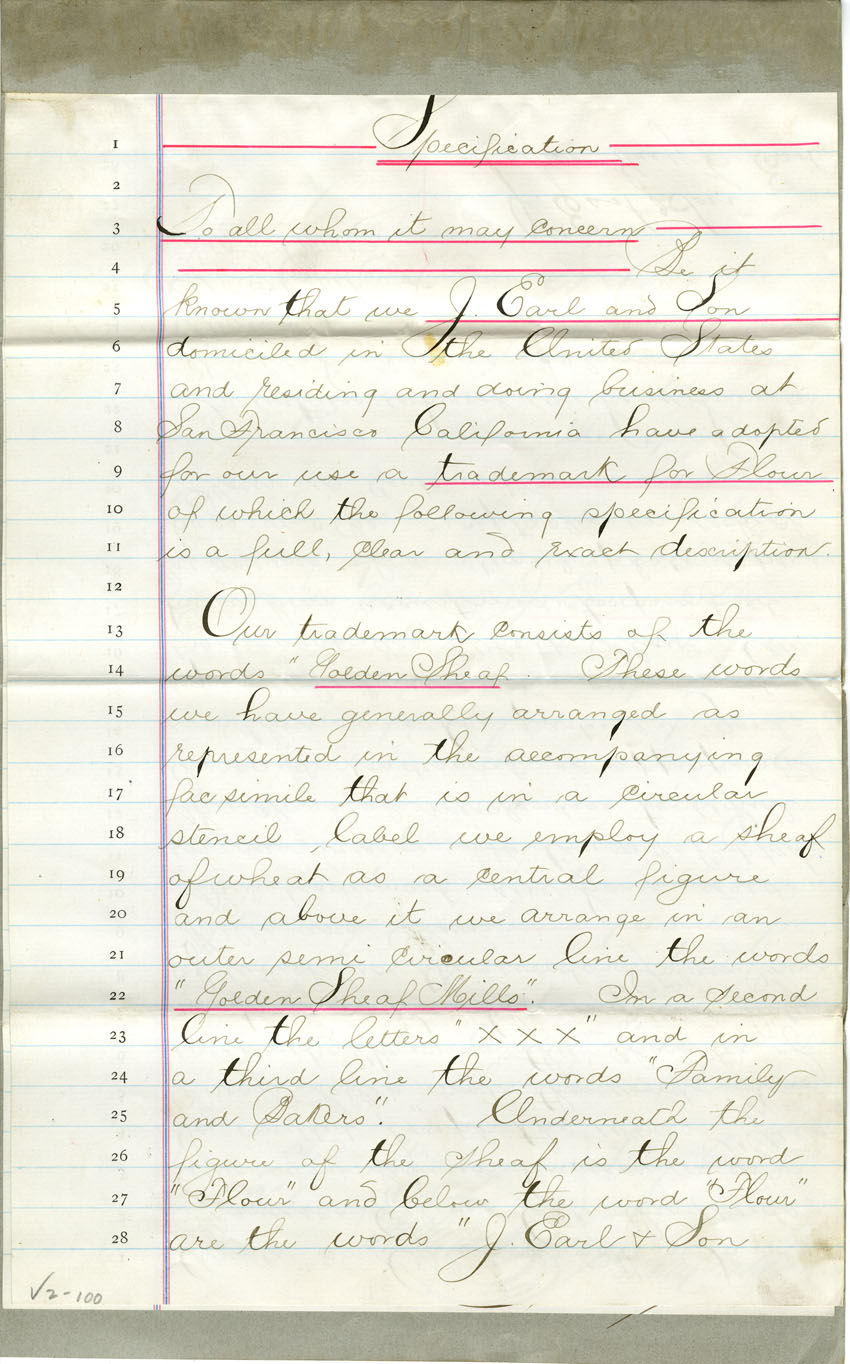 1 Specification
2
3 To all whom it may concern
4 Be it
5 known that we J. Earl and Son
6 domiciled in the United States
7 and residing and doing business at
8 San Francisco California have adopted
9 for our use a trademark for Flour
10 of which the following specification
11 is a full, clear and exact description.
12
13 Our trademark consists of the
14 words "Golden Sheaf. These words
15 we have generally arranged as
16 represented in the accompanying
17 fac simile that is in a circular
18 stencil, label we employ a sheaf
19 of wheat as a central figure
20 and above it we arrange in an
21 outer semi circular line the words
22 "Golden Sheaf Mills". In a second
23 line the letters "XXX" and in
24 a third line the words "Family
25 and Bakers". Underneath the
26 figure of the sheaf is the word
27 "Flour" and below the word "Flour"
28 are the words "J. Earl & Son
√2-100